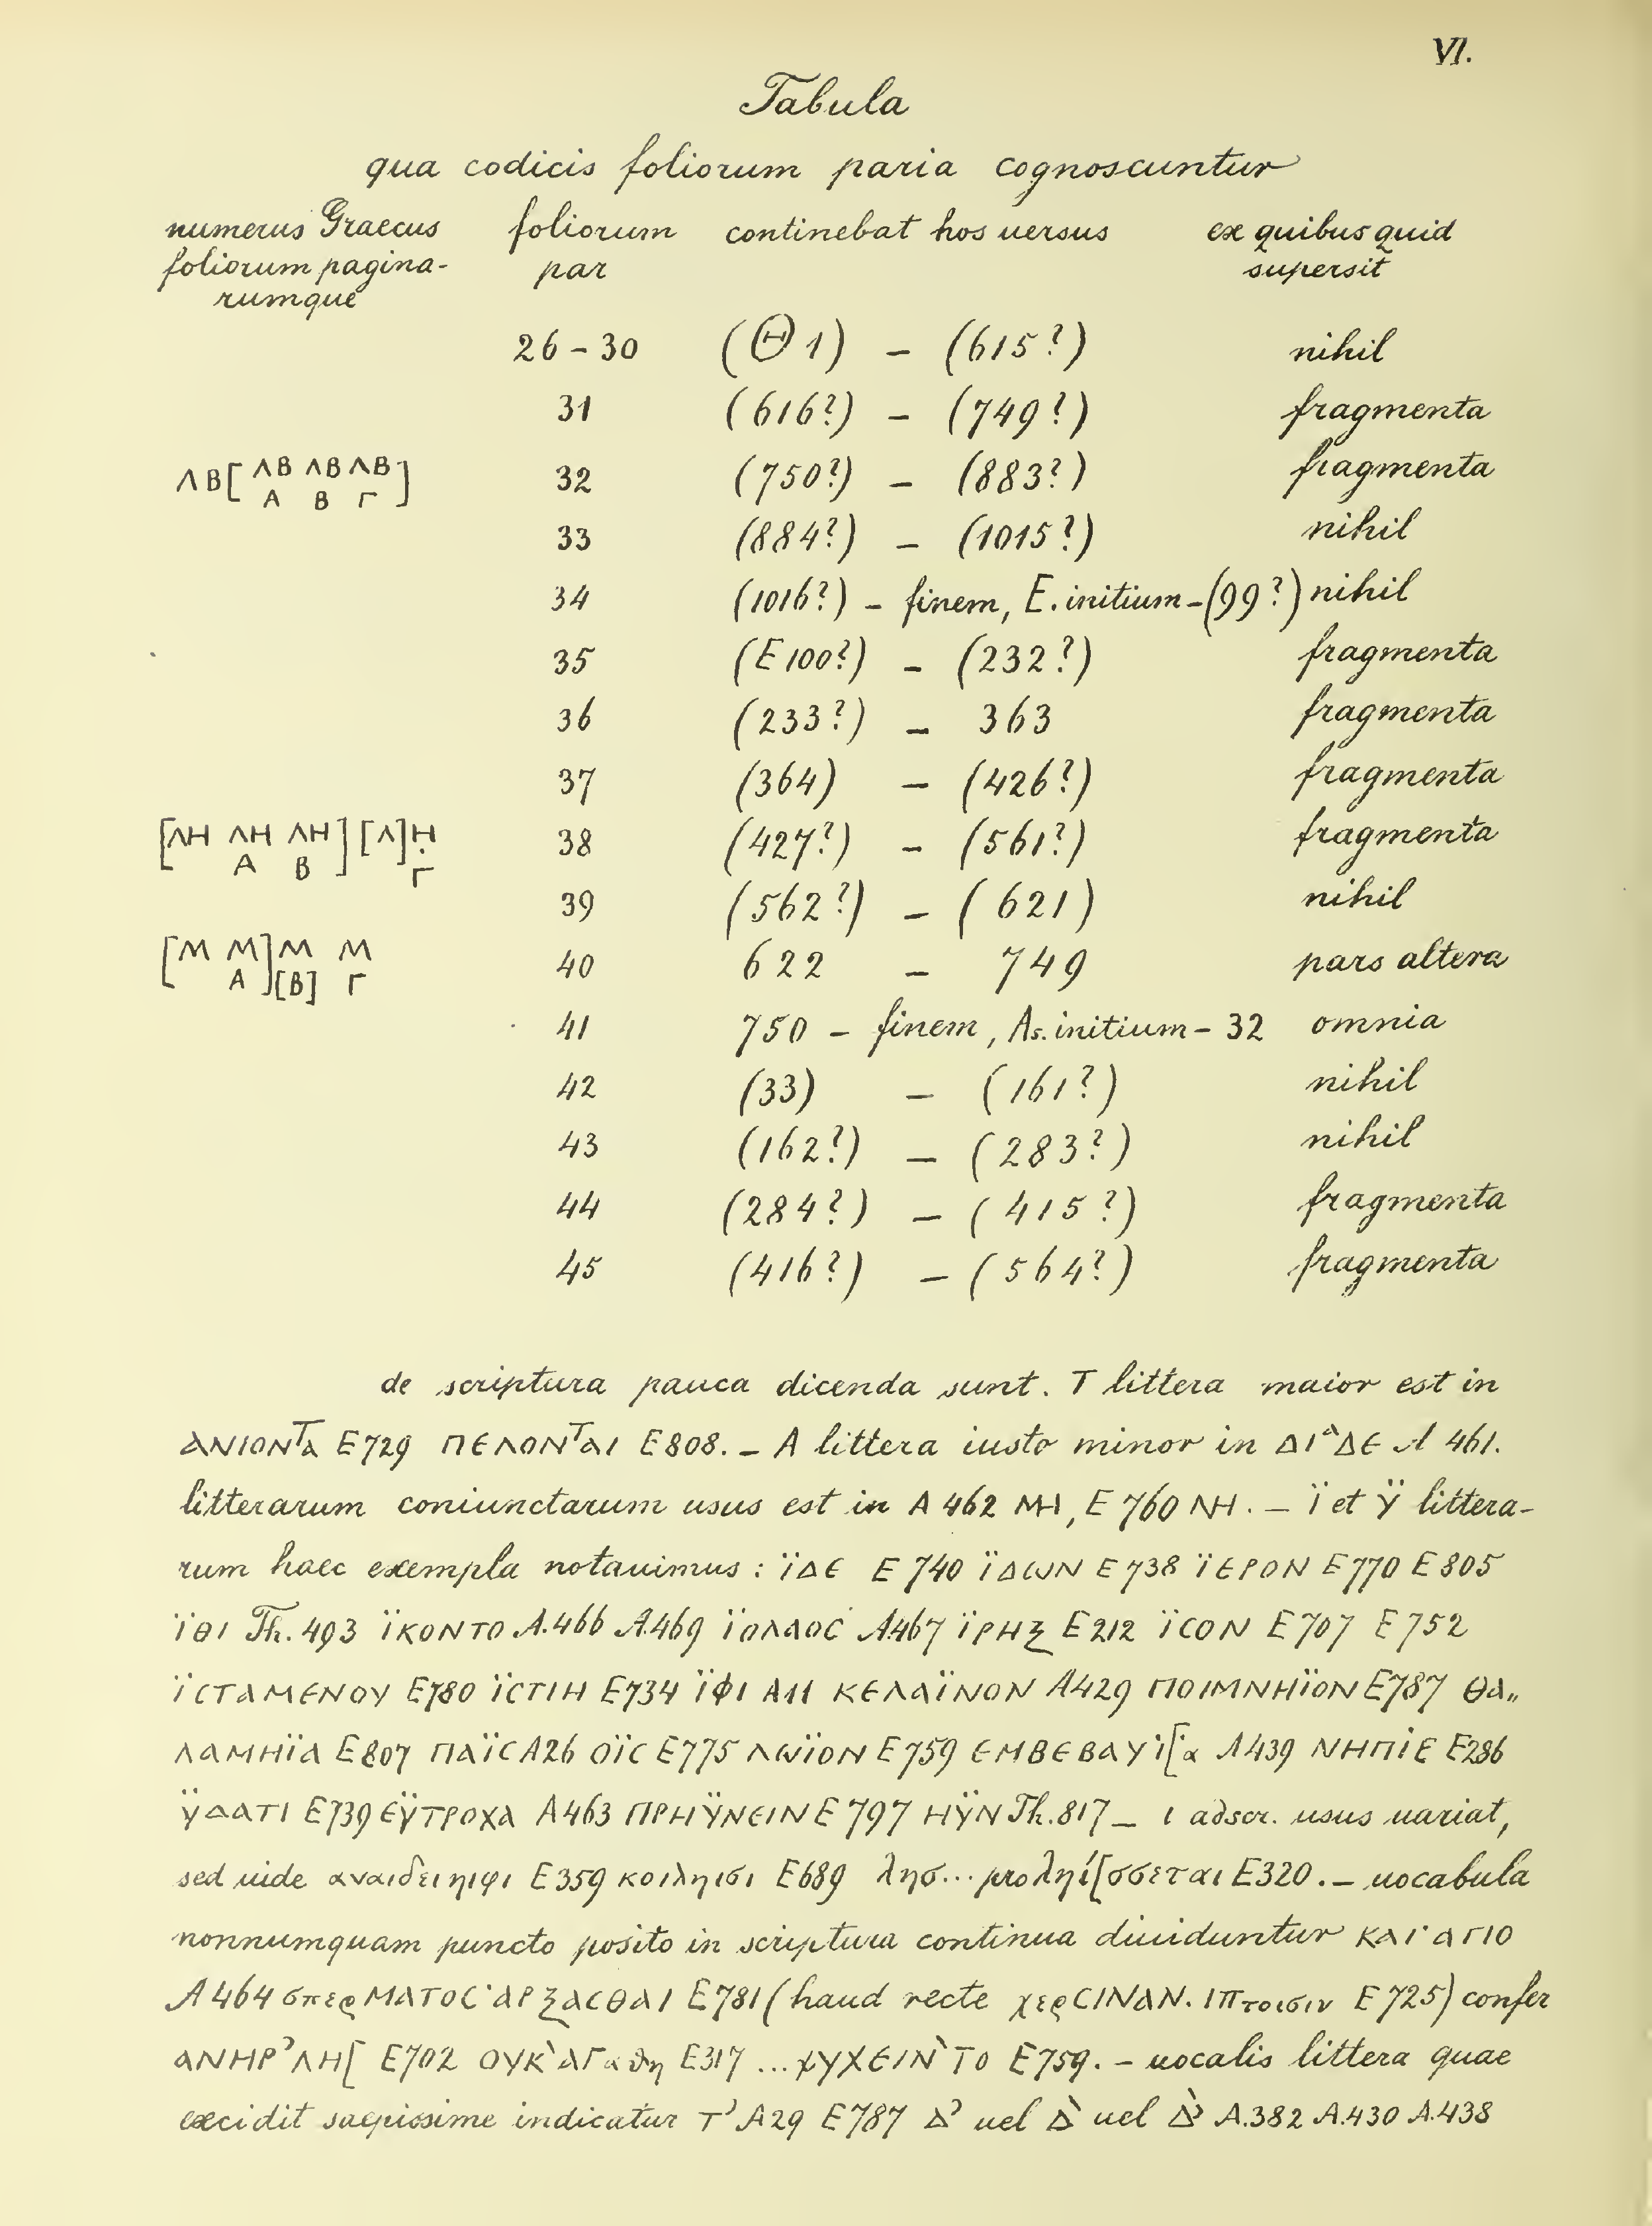 VI.
Tabula
qua codicis foliorum paria cognoscuntur
numerus Graecus foliorum continebat hos uersus ex quibus quid
foliorum pagina- par supersit
rumque
26 – 30 (Θ 1) – (615?) nihil
31 (616?) – (749?) fragmenta
ΛΒ[ ΛΒ ΛΒ ΛΒ ] 32 (750?) – (883?) fragmenta
Α Β Γ
33 (884?) – (1015?) nihil
34 (1016?) – finem, E. initium – (99?) nihil
35 (E 100?) – (232?) fragmenta
36 (233?) – 363 fragmenta
37 (364) – (426?) fragmenta
[ΛΗ ΛΗ ΛΗ] [Λ]Η 38 (427?) – (561?) fragmenta
Α Β Γ
39 (562?) – (621) nihil
[Μ Μ]Μ Μ 40 622 – 749 pars altera
Α [Β] Γ
41 750 – finem, As. initium – 32 omnia
42 (33) – (161?) nihil
43 (162?) – (283?) nihil
44 (284?) – (415?) fragmenta
45 (416?) – (564?) fragmenta
de scriptura pauca dicenda sunt. T littera maior est in
ΑΝΙΟΝΤΑ E 729 ΠΕΛΟΝΤΑΙ E 808. – A littera iusto minor in ΔΙΑΔΕ A 461.
litterarum coniunctarum usus est in A 462 ΜΗ, E 760 ΝΗ. – Ϊ et Ϋ littera-
rum haec exempla notauimus: ΪΔΕ E 740 ΪΔωΝ E 738 ΪΕΡΟΝ E 770 E 805
ΪΘΙ Th. 493 ΪΚΟΝΤΟ A.466 A.469 ΪΟΛΑΟϹ A.467 ΪΡΗΞ E 212 ΪϹΟΝ E 707 E 752
ΪϹΤΑΜΕΝΟΥ E780 ΪϹΤΙΗ E734 ΪΦΙ A11 ΚΕΛΑΪΝΟΝ A429 ΠΟΙΜΝΗΪΟΝ E787 ΘΑ„
ΛΑΜΗΪΑ E807 ΠΑΪϹ A26 ΟΪϹ E775 ΛωΪΟΝ E759 ΕΜΒΕΒΑΥΪ[α A439 ΝΗΠΪΕ E286
ΫΔΑΤΙ E739 ΕΫΤΡΟΧΑ A463 ΠΡΗΫΝΕΙΝ E 797 ΗΫΝ Th. 817 – ι adscr. usus uariat,
sed uide αναιδειηιφι E 359 κοιληισι E689 λησ... pro ληί[σσεται E320. – uocabula
nonnumquam puncto posito in scriptura continua diuiduntur ΚΑΙ˙ΑΓΙΟ
A 464 σπερΜΑΤΟϹ˙ΑΡΞΑϹΘΑΙ E 781 (haud recte χερϹΙΝΑΝ. ΙΠτοισιν E 725) confer
ΑΝΗΡ᾿ΛΗ[ E702 ΟΥΚ`ΑΓαθη E317 ...ΨΥΧΕΙΝ`ΤΟ E759. – uocalis littera quae
excidit saepissime indicatur Τ᾿ A29 E787 Δ᾿ uel Δ` uel Δ`᾿ A.382 A.430 A.438